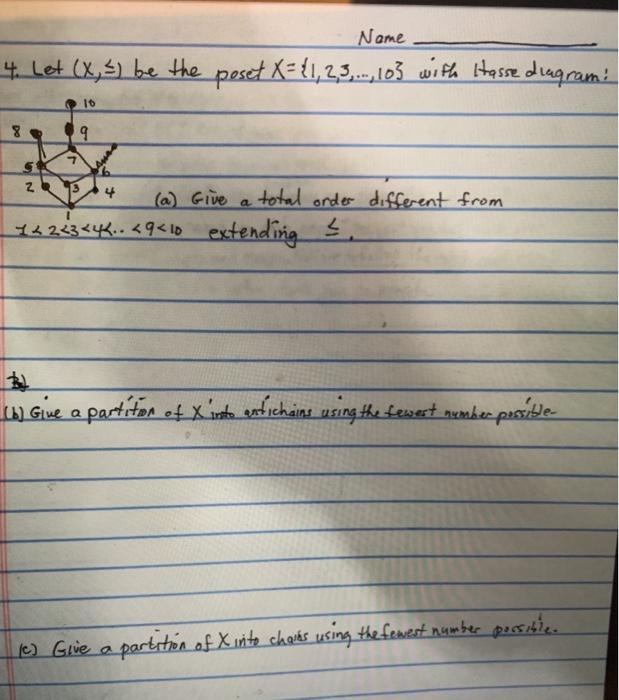 Name
4. Let (X,≤) be the poset X={1,2,3,...,10} with Hasse diagram:
10
8 9
7
5 6
2 3 4
1
(a) Give a total order different from
1<2<3<4<..<9<10 extending ≤.
(b) Give a partition of X into antichains using the fewest number possible.
(c) Give a partition of X into chains using the fewest number possible.